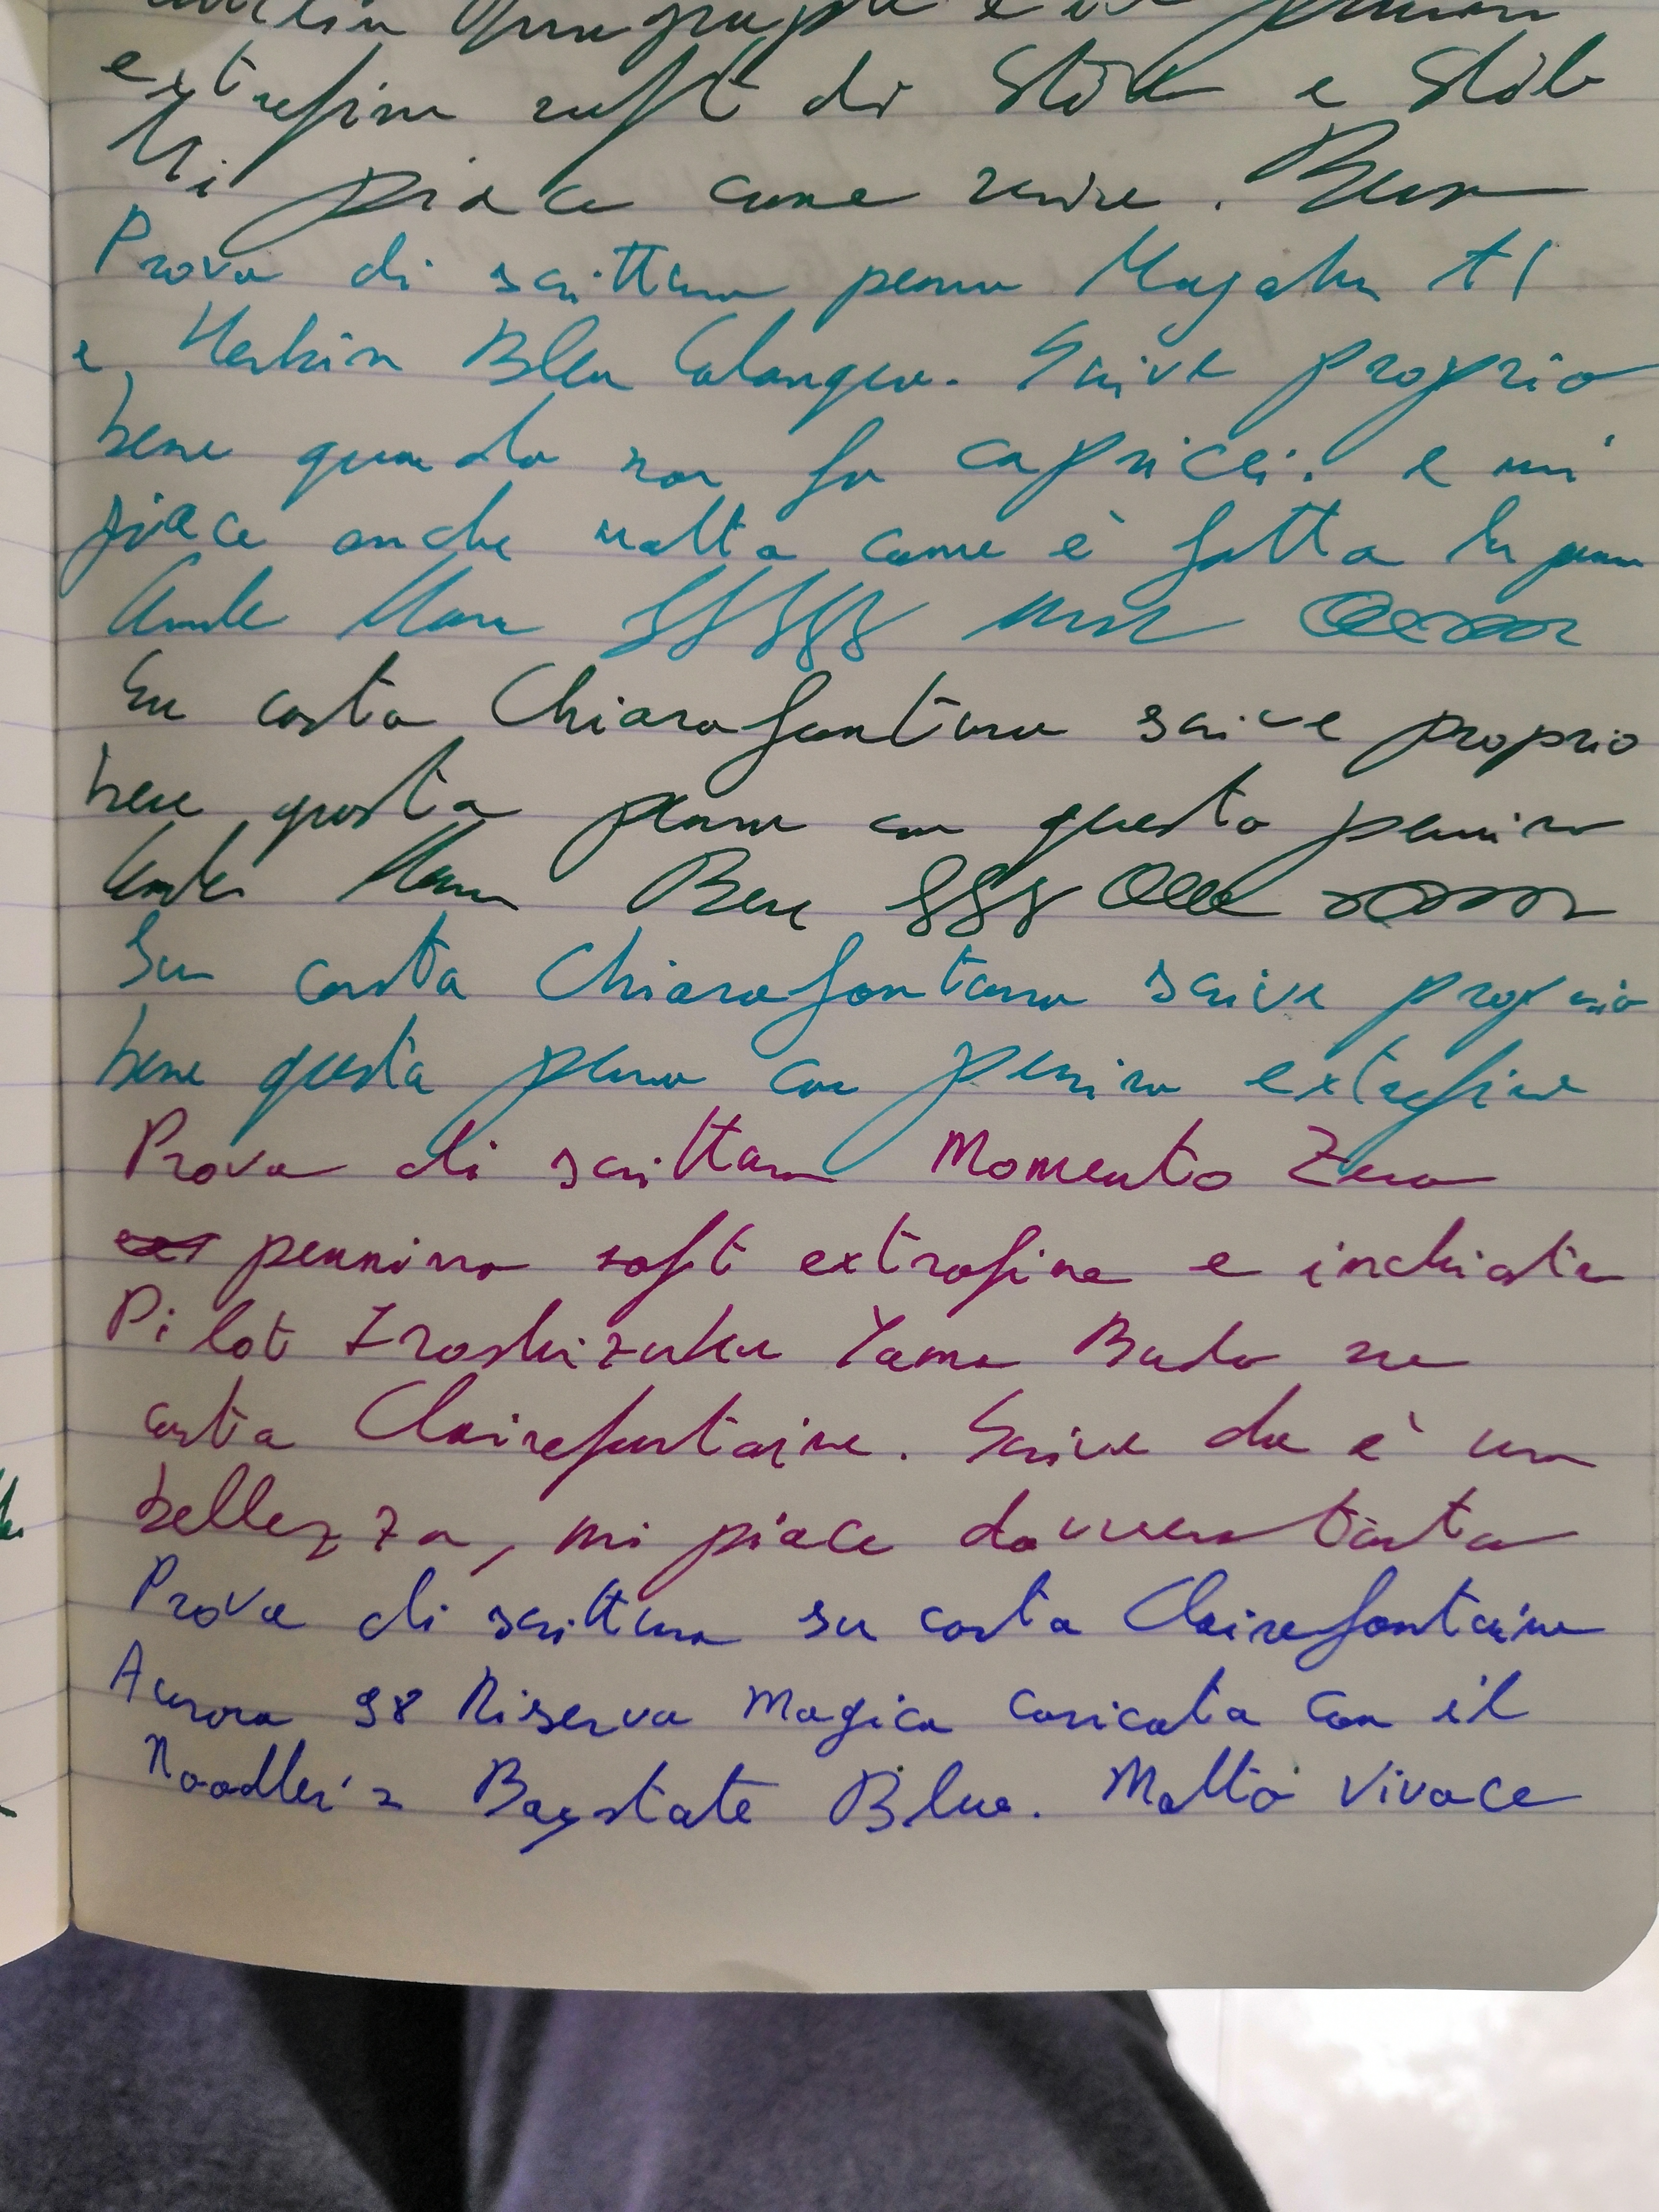 extrafine soft di Stilo e Stile
Mi piace come scrive. Bene
Prova di scrittura penna Majohn A1
e Herbin Bleu Calanque. Scrive proprio
bene quando non fa capricci. e mi
piace anche molto come è fatta la penna
Su carta Chiarafontana scrive proprio
bene questa penna con questo pennino
Bene
Su carta Chiarafontana scrive proprio
bene questa penna con pennino extrafine
Prova di scrittura Momento Zero
pennino soft extrafine e inchiostro
Pilot Iroshizuku Yama Budo su
carta Clairefontaine. Scrive che è una
bellezza, mi piace davvero tanto
Prova di scrittura su carta Clairefontaine
Aurora 98 Riserva Magica caricata con il
Noodler's Baystate Blue. Molto vivace